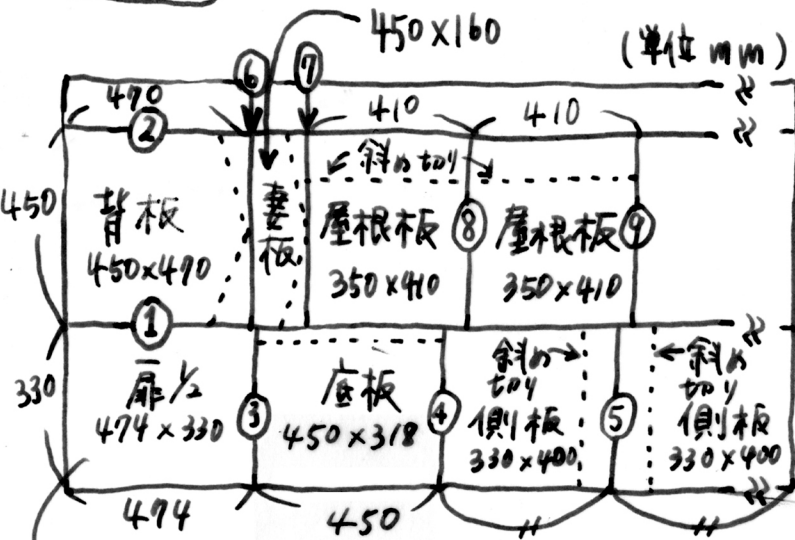 450×160
(単位mm)
⑥ ⑦
470 410 410
②
斜め切り
450
背板
450×470
妻板
屋根板 ⑧ 屋根板 ⑨
350×410 350×410
①
330
扉1/2
474×330
③
底板
450×318
④
斜め
切り
側板
330×400
⑤
斜め
切り
側板
330×400
474 450